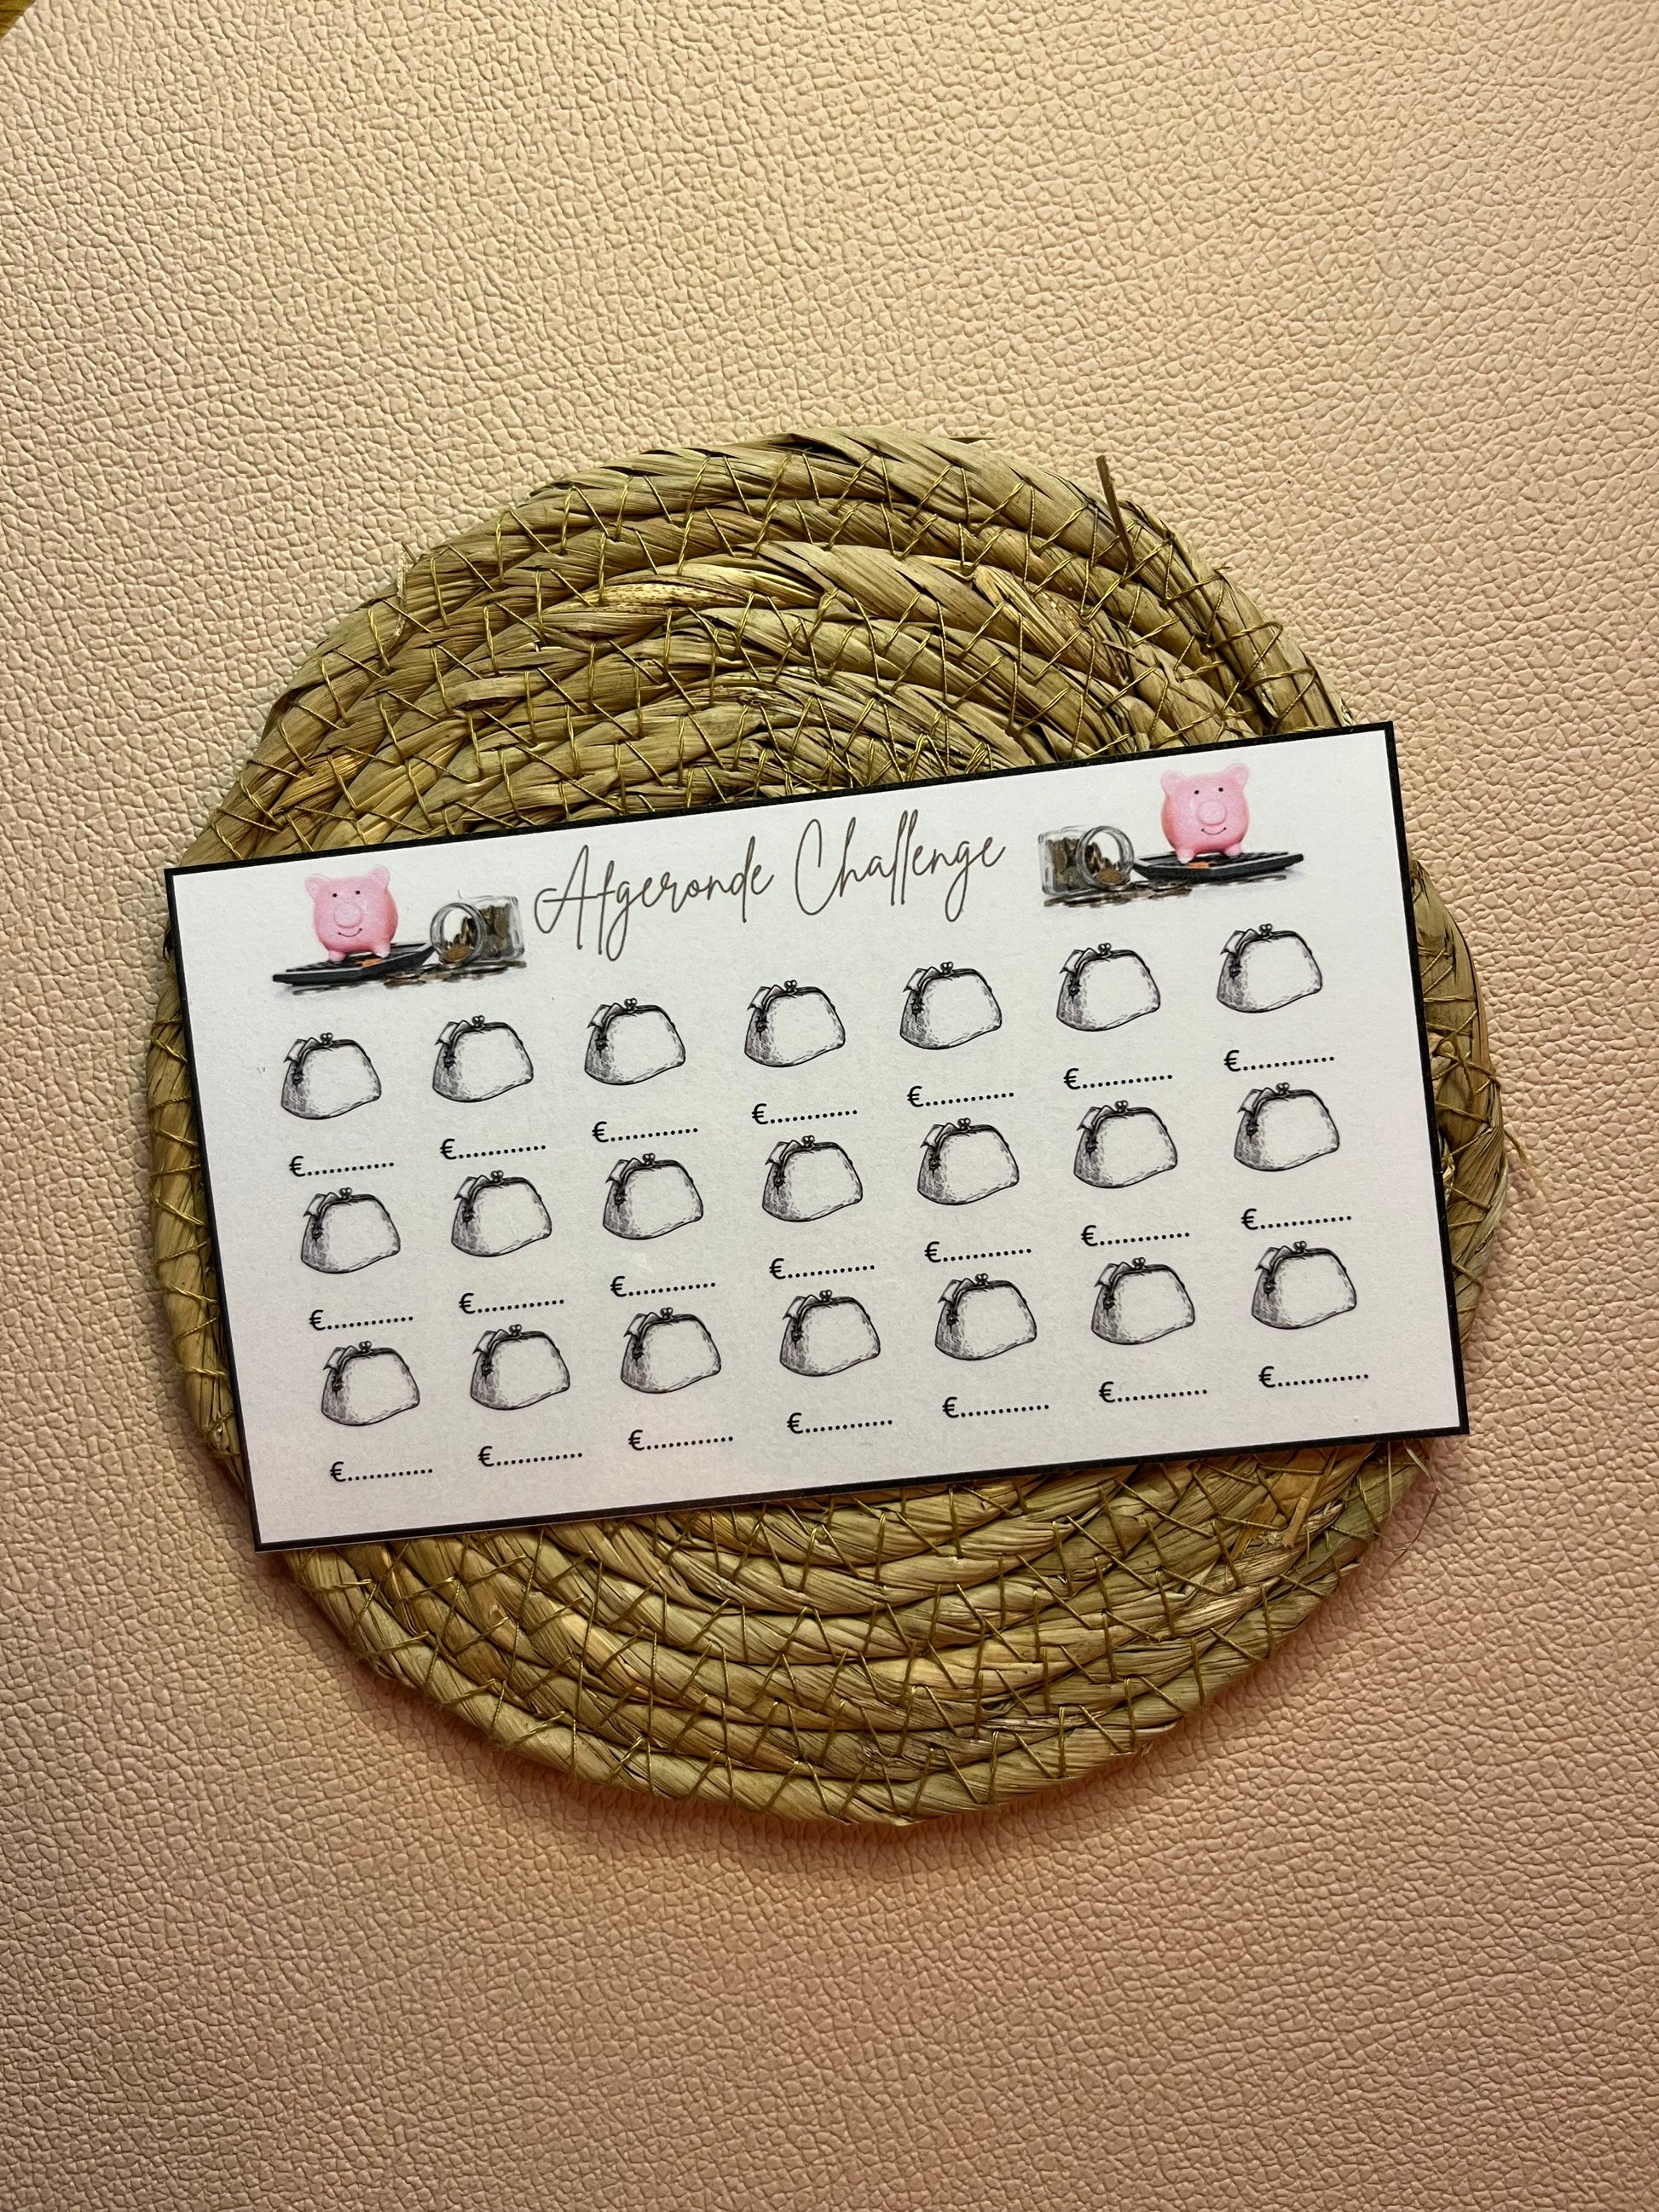 Afgeronde Challenge
€............ €............ €............ €............ €............ €............ €............
€............ €............ €............ €............ €............ €............ €............
€............ €............ €............ €............ €............ €............ €............